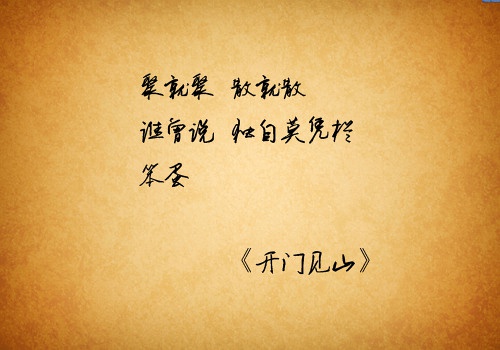 聚就聚 散就散
谁曾说 独自莫凭栏
笨蛋
《开门见山》